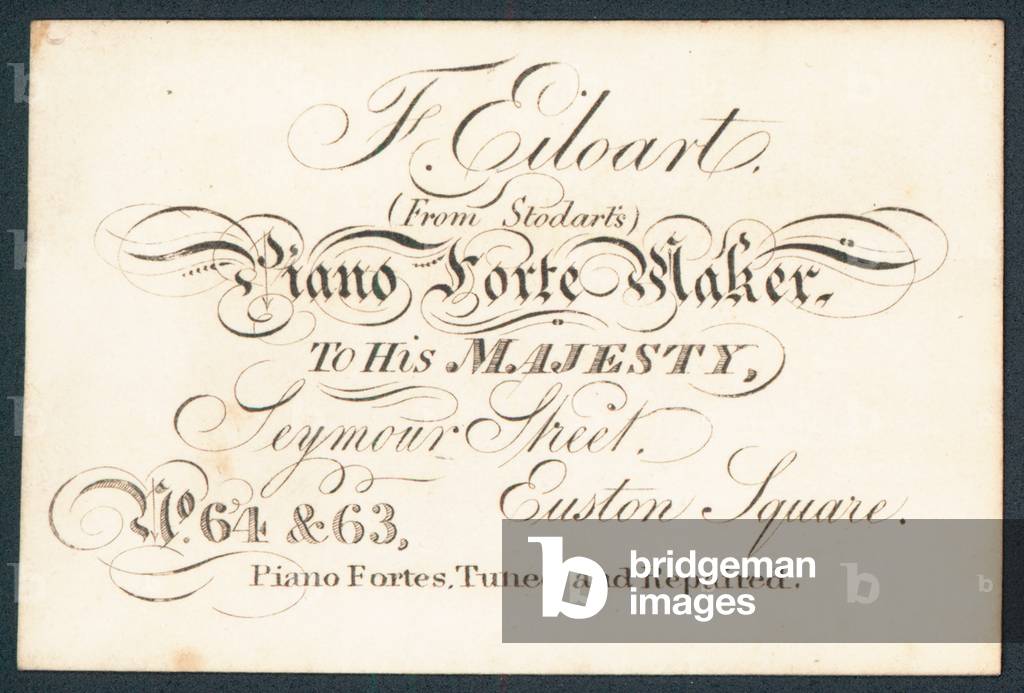 F. Eiloart.
(From Stodart's)
Piano Forte Maker,
To His MAJESTY,
Seymour Street.
Euston Square.
No. 64 & 63,
Piano Fortes, Tuned and Repaired.
bridgeman
images